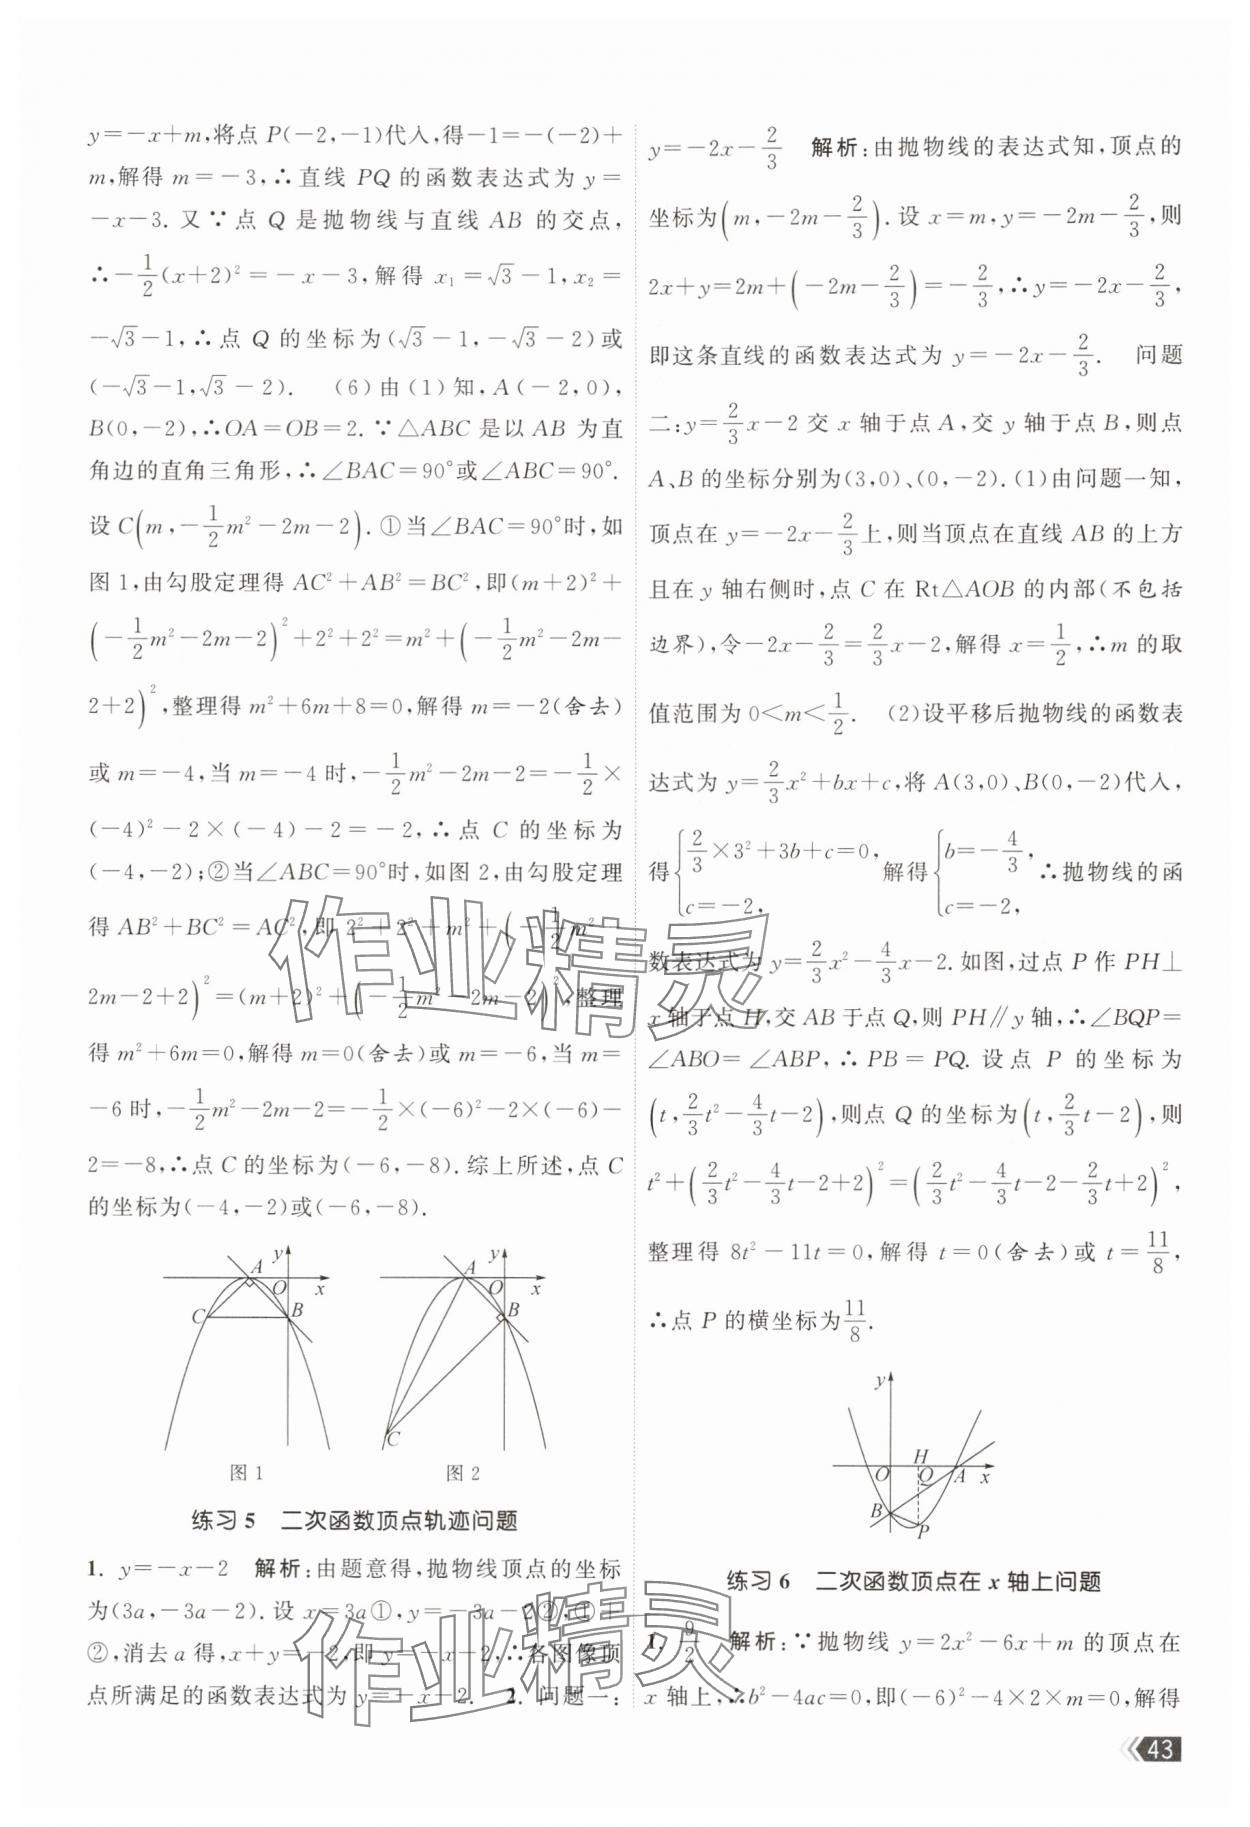 y=-x+m,将点 P(-2,-1)代入,得-1=-(-2)+
m,解得 m=-3,∴直线 PQ 的函数表达式为 y=
-x-3. 又∵点 Q 是抛物线与直线 AB 的交点,
∴-1/2(x+2)²=-x-3,解得 x₁=√3-1,x₂=
-√3-1,∴点 Q 的坐标为(√3-1,-√3-2)或
(-√3-1,√3-2). (6)由(1)知,A(-2,0),
B(0,-2),∴OA=OB=2. ∵△ABC 是以 AB 为直
角边的直角三角形,∴∠BAC=90°或∠ABC=90°.
设 C(m,-1/2m²-2m-2). ①当∠BAC=90°时,如
图 1,由勾股定理得 AC²+AB²=BC²,即(m+2)²+
(-1/2m²-2m-2)²+2²+2²=m²+(-1/2m²-2m-
2+2)²,整理得 m²+6m+8=0,解得 m=-2(舍去)
或 m=-4,当 m=-4 时,-1/2m²-2m-2=-1/2×
(-4)²-2×(-4)-2=-2,∴点 C 的坐标为
(-4,-2);②当∠ABC=90°时,如图 2,由勾股定理
得 AB²+BC²=AC²,即 2²+2²+m²+(-1/2m²-
2m-2+2)²=(m+2)²+(-1/2m²-2m-2)²,整理
得 m²+6m=0,解得 m=0(舍去)或 m=-6,当 m=
-6 时,-1/2m²-2m-2=-1/2×(-6)²-2×(-6)-
2=-8,∴点 C 的坐标为(-6,-8). 综上所述,点 C
的坐标为(-4,-2)或(-6,-8).
y A O x C B
图 1
y A O x B C
图 2
练习 5 二次函数顶点轨迹问题
1. y=-x-2 解析:由题意得,抛物线顶点的坐标
为(3a,-3a-2). 设 x=3a①,y=-3a-2②,①+
②,消去 a 得,x+y=-2,即 y=-x-2,∴各图像顶
点所满足的函数表达式为 y=-x-2. 2. 问题一:
y=-2x-2/3 解析:由抛物线的表达式知,顶点的
坐标为(m,-2m-2/3). 设 x=m,y=-2m-2/3,则
2x+y=2m+(-2m-2/3)=-2/3,∴y=-2x-2/3,
即这条直线的函数表达式为 y=-2x-2/3. 问题
二:y=2/3x-2 交 x 轴于点 A,交 y 轴于点 B,则点
A、B 的坐标分别为(3,0)、(0,-2). (1)由问题一知,
顶点在 y=-2x-2/3上,则当顶点在直线 AB 的上方
且在 y 轴右侧时,点 C 在 Rt△AOB 的内部(不包括
边界),令-2x-2/3=2/3x-2,解得 x=1/2,∴m 的取
值范围为 0<m<1/2. (2)设平移后抛物线的函数表
达式为 y=2/3x²+bx+c,将 A(3,0)、B(0,-2)代入,
得{2/3×3²+3b+c=0, c=-2, 解得{b=-4/3, c=-2, ∴抛物线的函
数表达式为 y=2/3x²-4/3x-2. 如图,过点 P 作 PH⊥
x 轴于点 H,交 AB 于点 Q,则 PH∥y 轴,∴∠BQP=
∠ABO=∠ABP,∴PB=PQ. 设点 P 的坐标为
(t,2/3t²-4/3t-2),则点 Q 的坐标为(t,2/3t-2),则
t²+(2/3t²-4/3t-2+2)²=(2/3t²-4/3t-2-2/3t+2)²,
整理得 8t²-11t=0,解得 t=0(舍去)或 t=11/8,
∴点 P 的横坐标为11/8.
y H O Q A x B P
练习 6 二次函数顶点在 x 轴上问题
1. 9/2 解析:∵抛物线 y=2x²-6x+m 的顶点在
x 轴上,∴b²-4ac=0,即(-6)²-4×2×m=0,解得
43
作业精灵
作业精灵